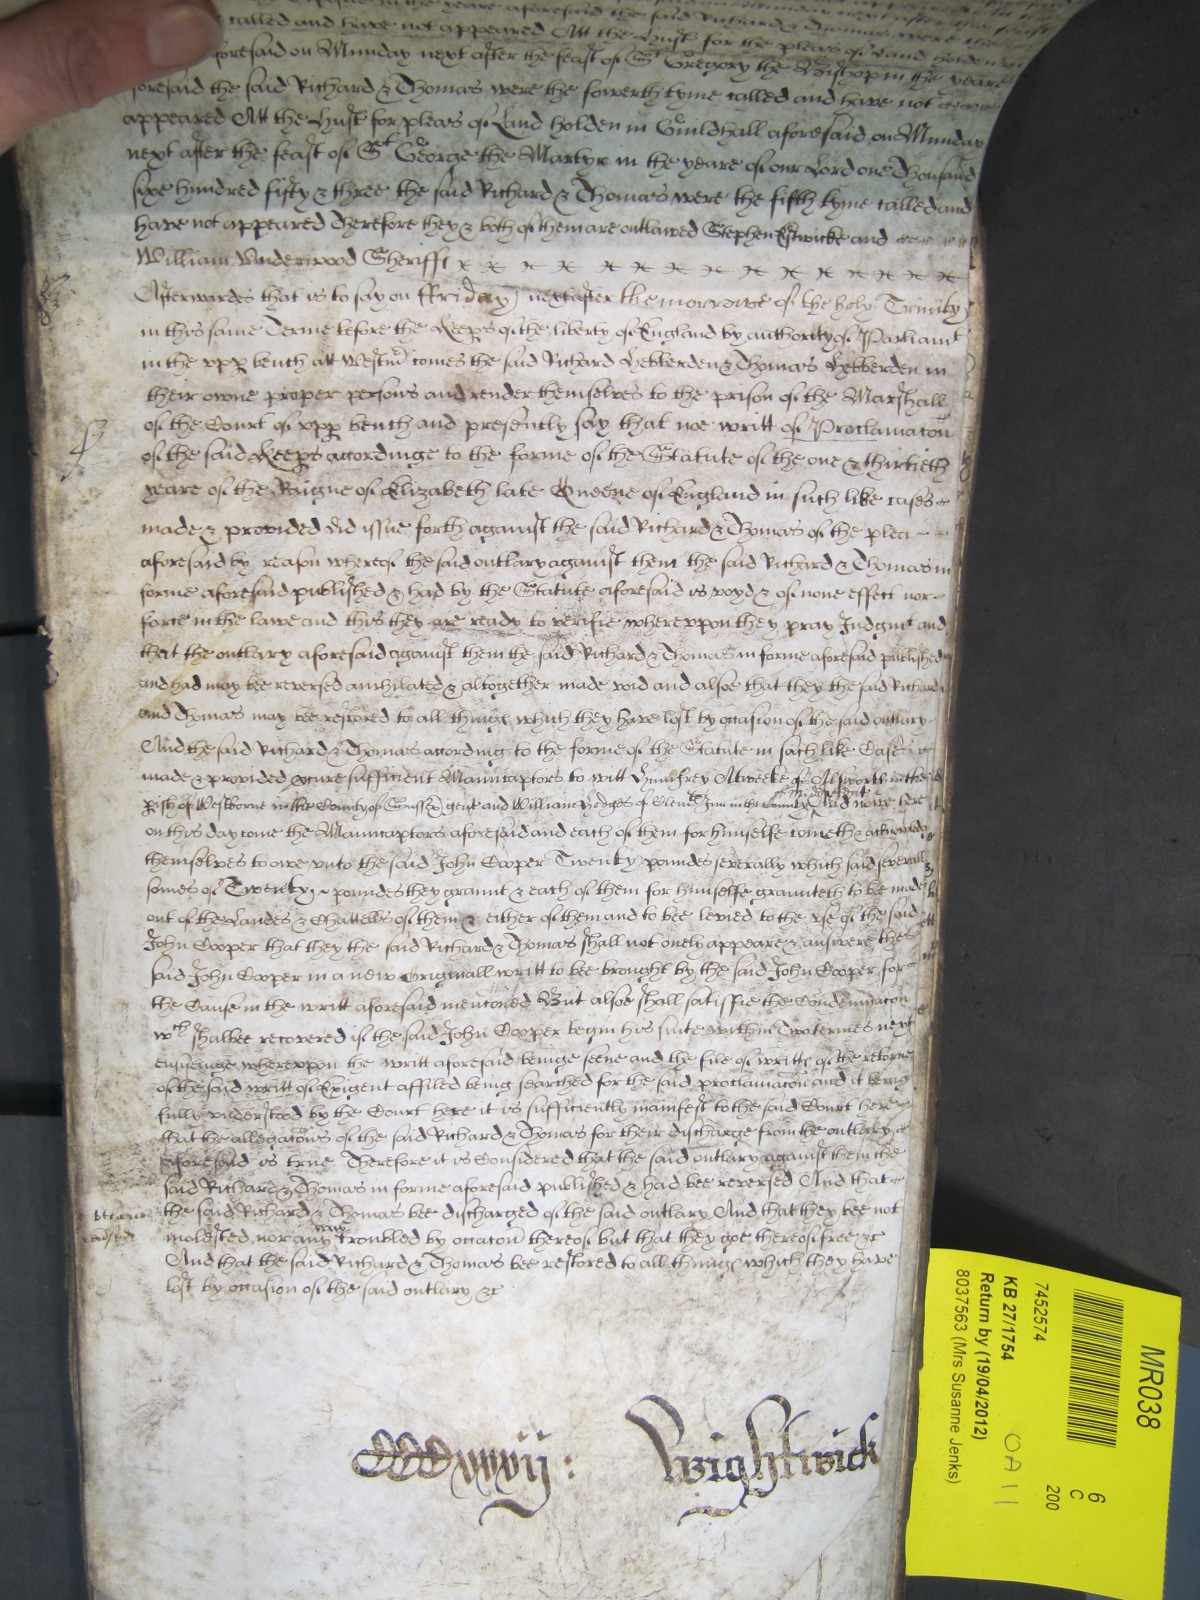 in the yeare aforesaid the said Richard & Thomas were the
called and have not appeared Att the Hust for the pleas of Land holden in
aforesaid on Munday next after the feast of St Gregory the Bishop in the yeare
foresaid the said Richard & Thomas were the fowerth tyme called and have not
appeared Att the Hust for pleas of Land holden in Guildhall aforesaid on Munday
next after the feast of St George the Martyr in the yeare of our Lord one Thousand
sixe hundred fifty & three the said Richard & Thomas were the fifth tyme called and
have not appeared Therefore they & both of them are outlawed Stephen Estwicke and
William Underwood Sheriffs
Afterwardes that is to say on Friday next after the morrowe of the holy Trinity
in this same Terme before the Keeps of the liberty of England by authority of Parliamt
in the upp bench att Westmr comes the said Richard Hebberden & Thomas Hebberden in
their owne proper persons and render themselves to the prison of the Marshall
of the Court of upp bench and presently say that noe writt of Proclamacon
of the said Keeps accordinge to the forme of the Statute of the one & thirtieth
yeare of the Raigne of Elizabeth late Queene of England in such like cases
made & provided did issue forth against the said Richard & Thomas of the plea
aforesaid by reason whereof the said outlary against them the said Richard & Thomas in
forme aforesaid published & had by the Statute aforesaid is voyd & of none effect nor
force in the lawe and this they are ready to verifie whereuppon they pray Judgmt and
that the outlary aforesaid against them the said Richard & Thomas in forme aforesaid published
and had may bee reversed anihilated & altogether made void and alsoe that they the said Richard
and Thomas may bee restored to all things which they have lost by occasion of the said outlary
And the said Richard & Thomas according to the forme of the Statute in such like Cases
made & provided procure sufficient Manucaptors to witt Humfrey Atweeke of Alsworth in the
pish of Westborne in the County of Sussex gent and William Hodges of Clemts Inn in the County of Middx gent And nowe here
on this day come the Manucaptors aforesaid and each of them for himselfe cometh & acknowledge
themselves to owe unto the said John Cooper Twenty poundes severally which said severall
somes of Twenty poundes they graunt & each of them for himselfe graunteth to bee made
out of the Landes & Chattells of them & either of them and to bee levied to the use of the said
John Cooper that they the said Richard & Thomas shall not onely appeare & answere the
said John Cooper in a new Originall writt to bee brought by the said John Cooper for
the Cause in the writt aforesaid menconed But alsoe shall satisfie the Condemnacon
wch shalbee recovered if the said John Cooper begin his suite within Two termes next
ensueinge whereuppon the writt aforesaid beinge seene and the file of writts of the retorne
of the said writt of Exigent affiled being searched for the said proclamacon and it being
fully understood by the Court here it is sufficiently manifest to the said Court here
that the allegacons of the said Richard & Thomas for their discharge from the outlary
aforesaid is true Therefore it is Considered that the said outlary against them the
said Richard & Thomas in forme aforesaid published & had bee reversed And that
the said Richard & Thomas bee discharged of the said outlary And that they bee not
molested nor any way troubled by occacon thereof but that they goe thereof free &c
And that the said Richard & Thomas bee restored to all things which they have
lost by occasion of the said outlary &c
CCCxxxvij: Wightwick
MR038
6
C
200
7452574
KB 27/1754
OA11
Return by (19/04/2012)
8037563 (Mrs Susanne Jenks)